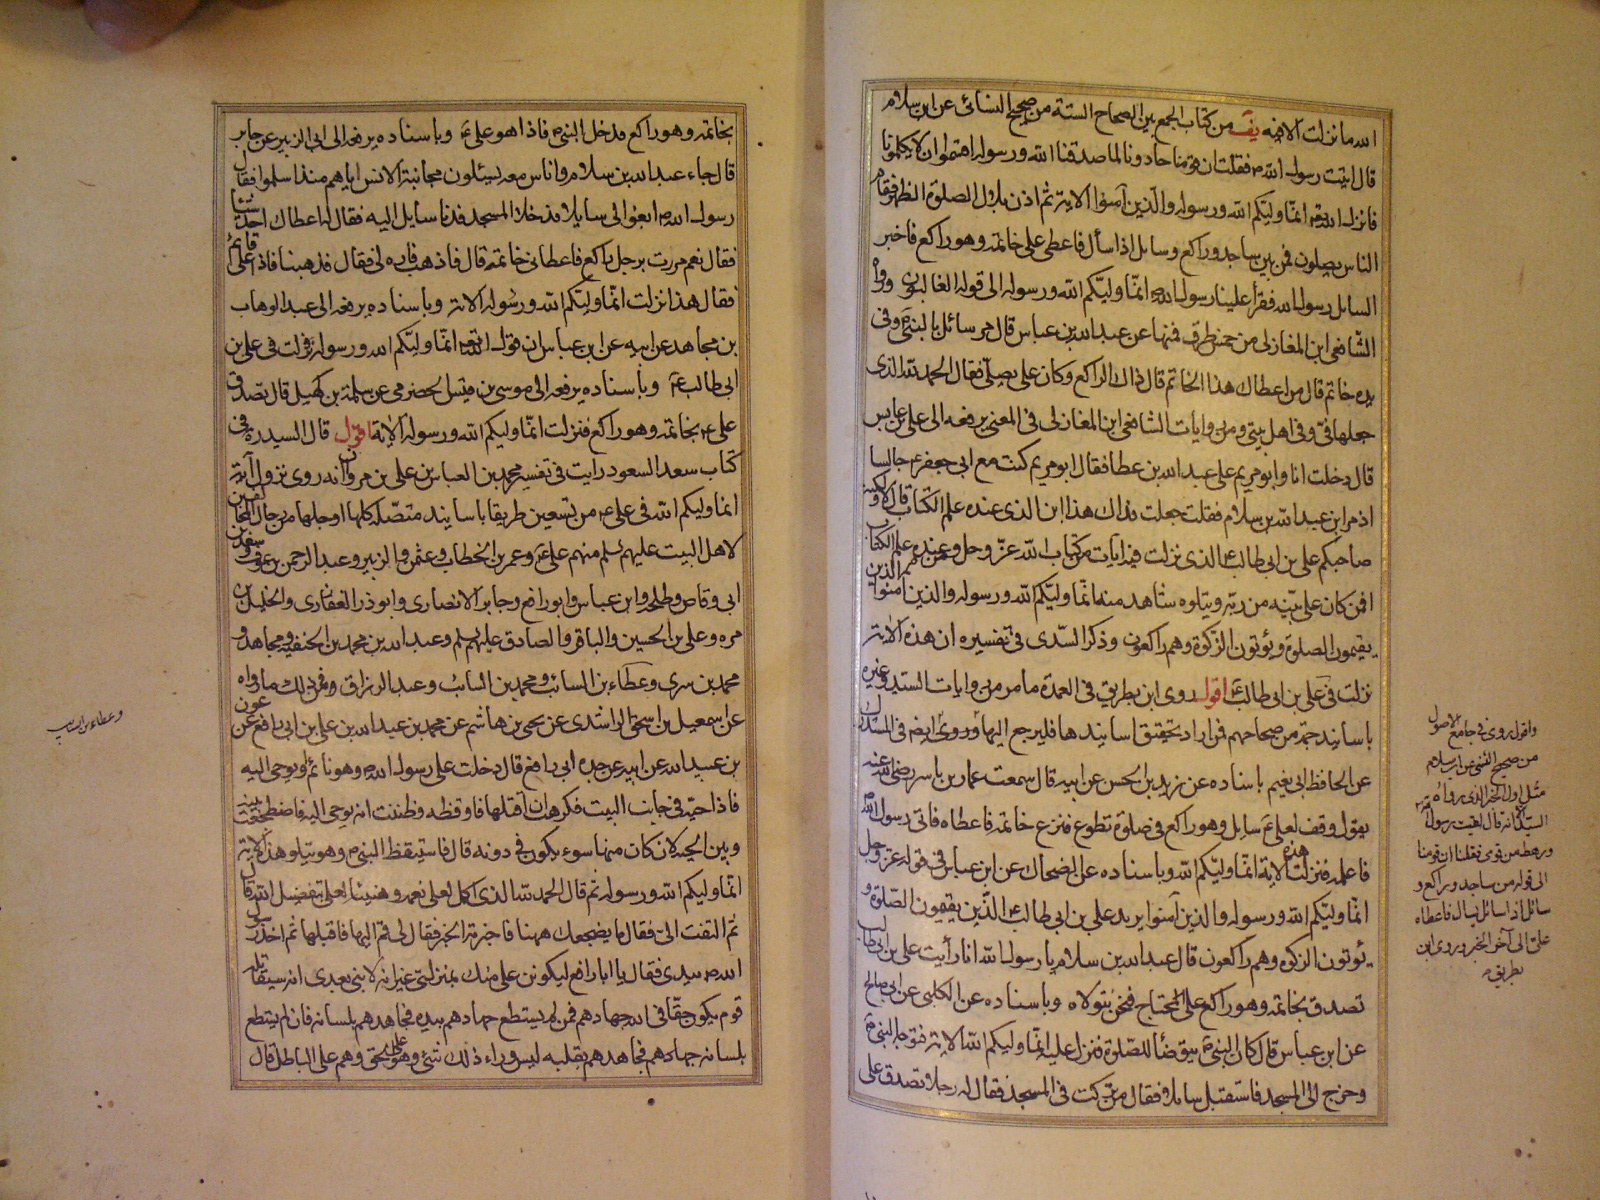 الله ما نزلت الاية يف من كتاب الجمع بين الصحاح الستة من صحيح النسائى عن ابن سلام
قال اتيت رسول الله ص فقلت ان قومنا حادونا لما صدقنا الله ورسوله اقسموا ان لا يكلمونا
فانزل الله تع انما وليكم الله ورسوله والذين آمنوا الاية ثم اذن بلال لصلوة الظهر فقام
الناس يصلون فمن بين ساجد وراكع وسايل اذا سأل فاعطى على خاتمه وهو راكع فاخبر
السايل رسول الله فقرأ علينا رسول الله ص انما وليكم الله ورسوله الى قوله الغالبون ورواه
الشافعى ابن المغازلى من خمس طرق فمنها عن عبد الله بن عباس قال مر سائل بالنبى ص وفى
يده خاتم قال من اعطاك هذا الخاتم قال ذاك الراكع وكان على يصلى فقال الحمد لله الذى
جعلها فى وفى اهل بيتى ومن روايات الشافعى ابن المغازلى فى المعنى يرفعه الى على بن عابس
قال دخلت انا وابو مريم على عبد الله بن عطا فقال ابو مريم كنت مع ابى جعفر ع جالسا
اذ مر ابن عبد الله بن سلام فقلت جعلت فداك هذا ابن الذى عنده علم الكتاب قال لا ولكنه
صاحبكم على بن ابى طالب ع الذى نزلت فيه ايات من كتاب الله عز وجل ومن عنده علم الكتاب
افمن كان على بينه من ربه ويتلوه شاهد منه انما وليكم الله ورسوله والذين آمنوا الذين
يقيمون الصلوة ويؤتون الزكوة وهم راكعون وذكر السدى فى تفسيره ان هذه الاية
نزلت فى على بن ابى طالب ع اقول روى ابن بطريق فى العمدة ما مر من روايات السيد وغيره
باسانيد جمة من صحاحهم فمن اراد تحقيق اسانيدها فليرجع اليها وروى ايضا فى المستدرك
عن الحافظ ابى نعيم باسناده عن زيد بن الحسن عن ابيه قال سمعت عمار بن ياسر رضى الله عنه
يقول وقف لعلى ع سايل وهو راكع فى صلوة تطوع فنزع خاتمه فاعطاه فاتى رسول الله ص
فاعلمه فنزلت هذه الاية انما وليكم الله وباسناده عن الضحاك عن ابن عباس فى قوله عز وجل
انما وليكم الله ورسوله والذين آمنوا يريد على بن ابى طالب ع الذين يقيمون الصلوة و
يؤتون الزكوة وهم راكعون قال عبد الله بن سلام يا رسول الله انا رأيت على بن ابى طالب
تصدق بخاتمه وهو راكع على المحتاج فنحن نتولاه وباسناده عن الكلبى عن ابى صالح
عن ابن عباس قال كان النبى ص يتوضأ للصلوة فنزل عليه انما وليكم الله الاية فتوجه النبى ص
وخرج الى المسجد فاستقبل سايلا فقال من تركت فى المسجد فقال له رجلا تصدق على
واقول روى فى جامع الاصول
من صحيح النسى عن ابن سلام
مثل اول الخبر الذى رواه
السيد انه قال لقيت رسول الله ص
ورهط من قومى فقلنا ان قومنا
الى قوله من ساجد وراكع و
سائل اذا سائل يسأل فاعطاه
على الى آخر الخبر وروى ابن
بطريق
بخاتمه وهو راكع فدخل النبى ص فاذا هو على ع وباسناده يرفعه الى ابى الزبير عن جابر
قال جاء عبد الله بن سلام واناس معه يسئلون مجانبة الناس اياهم منذ اسلموا فقال
رسول الله ص ابغوا الى سايلا فدخلنا المسجد فدنا سايل اليه فقال له اعطاك احد شيئا
فقال نعم مررت برجل راكع فاعطانى خاتمه قال فاذهب فاره لى فقال فذهبنا فاذا على قائم
فقال هذا نزلت انما وليكم الله ورسوله الاية وباسناده يرفعه الى عبد الوهاب
بن مجاهد عن ابيه عن ابن عباس ان قول الله تع انما وليكم الله ورسوله نزلت فى على بن
ابى طالب ع وباسناده يرفعه الى موسى بن قيس الحضرمى عن سلمة بن كهيل قال تصدق
على ع بخاتمه وهو راكع فنزلت انما وليكم الله ورسوله الاية اقول قال السيد ره فى
كتاب سعد السعود رايت فى تفسير محمد بن العباس بن على بن مروان انه روى نزول آية
انما وليكم الله فى على ع من تسعين طريقا باسانيد متصله كلها او جلها من رجال المخالفين
لاهل البيت عليهم السلم منهم على ع وعمر بن الخطاب وعثمن والزبير وعبد الرحمن بن عوف وسعد بن
ابى وقاص وطلحه وابن عباس وابو رافع وجابر الانصارى وابو ذر الغفارى والخليل بن
مره وعلى بن الحسين والباقر والصادق عليهم السلم وعبد الله بن محمد بن الحنفيه ومجاهد و
محمد بن سرى وعطاء بن السائب ومحمد بن السائب وعبد الرزاق فمن ذلك ما رواه
عن اسمعيل بن اسحق الراشدى عن يحيى بن هاشم عن محمد بن عبيد الله بن على بن ابى رافع عن عون
بن عبيد الله عن ابيه عن جده ابى رافع قال دخلت على رسول الله ص وهو نائم او يوحى اليه
فاذا حية فى جانب البيت فكرهت ان اقتلها فاوقظه وظننت انه يوحى اليه فاضطجعت بينه
وبين الحية لان كان منها سوء يكون فى دونه قال فاستيقظ النبى ص وهو يتلو هذه الاية
انما وليكم الله ورسوله ثم قال الحمد لله الذى اكمل لعلى نعمه وهنيئا لعلى بتفضيل الله قال
ثم التفت الى فقال ما يضجعك ههنا فاخبرته الخبر فقال لى قم اليها فاقتلها ثم اخذ رسول
الله ص بيدى فقال يا ابا رافع ليكونن على منك بمنزلتى غير انه لا نبى بعدى انه سيقاتله
قوم يكون حقا فى الله جهادهم فمن لم يستطع جهادهم بيده فجاهدهم بلسانه فان لم يستطع
بلسانه جهادهم فجاهدهم بقلبه ليس وراء ذلك شئ وهو على الحق وهم على الباطل قال
وعطاء بن السايب